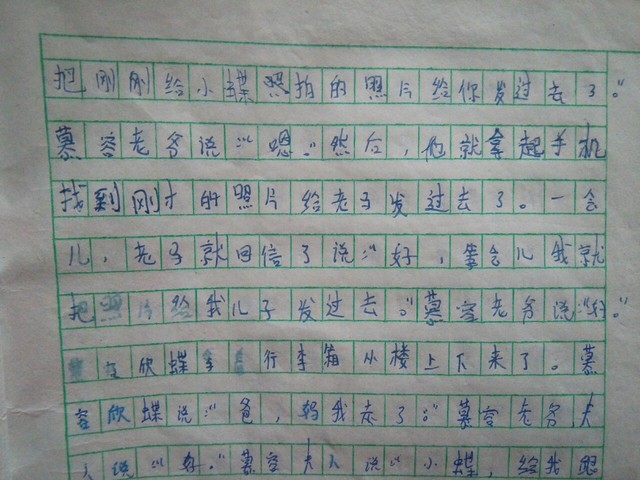 把刚刚给小蝶照拍的照片给你发过去了。”
慕容老爷说：“嗯。”然后，他就拿起手机
找到刚才的照片给老马发过去了。一会
儿，老马就回信了说：“好，等会儿我就
把照片给我儿子发过去。”慕容老爷说：“好。”
容欣蝶拿行李箱从楼上下来了。慕
容欣蝶说：“爸，妈我走了。”慕容老爷夫
人说：“好。”慕容夫人说：“小蝶，给我